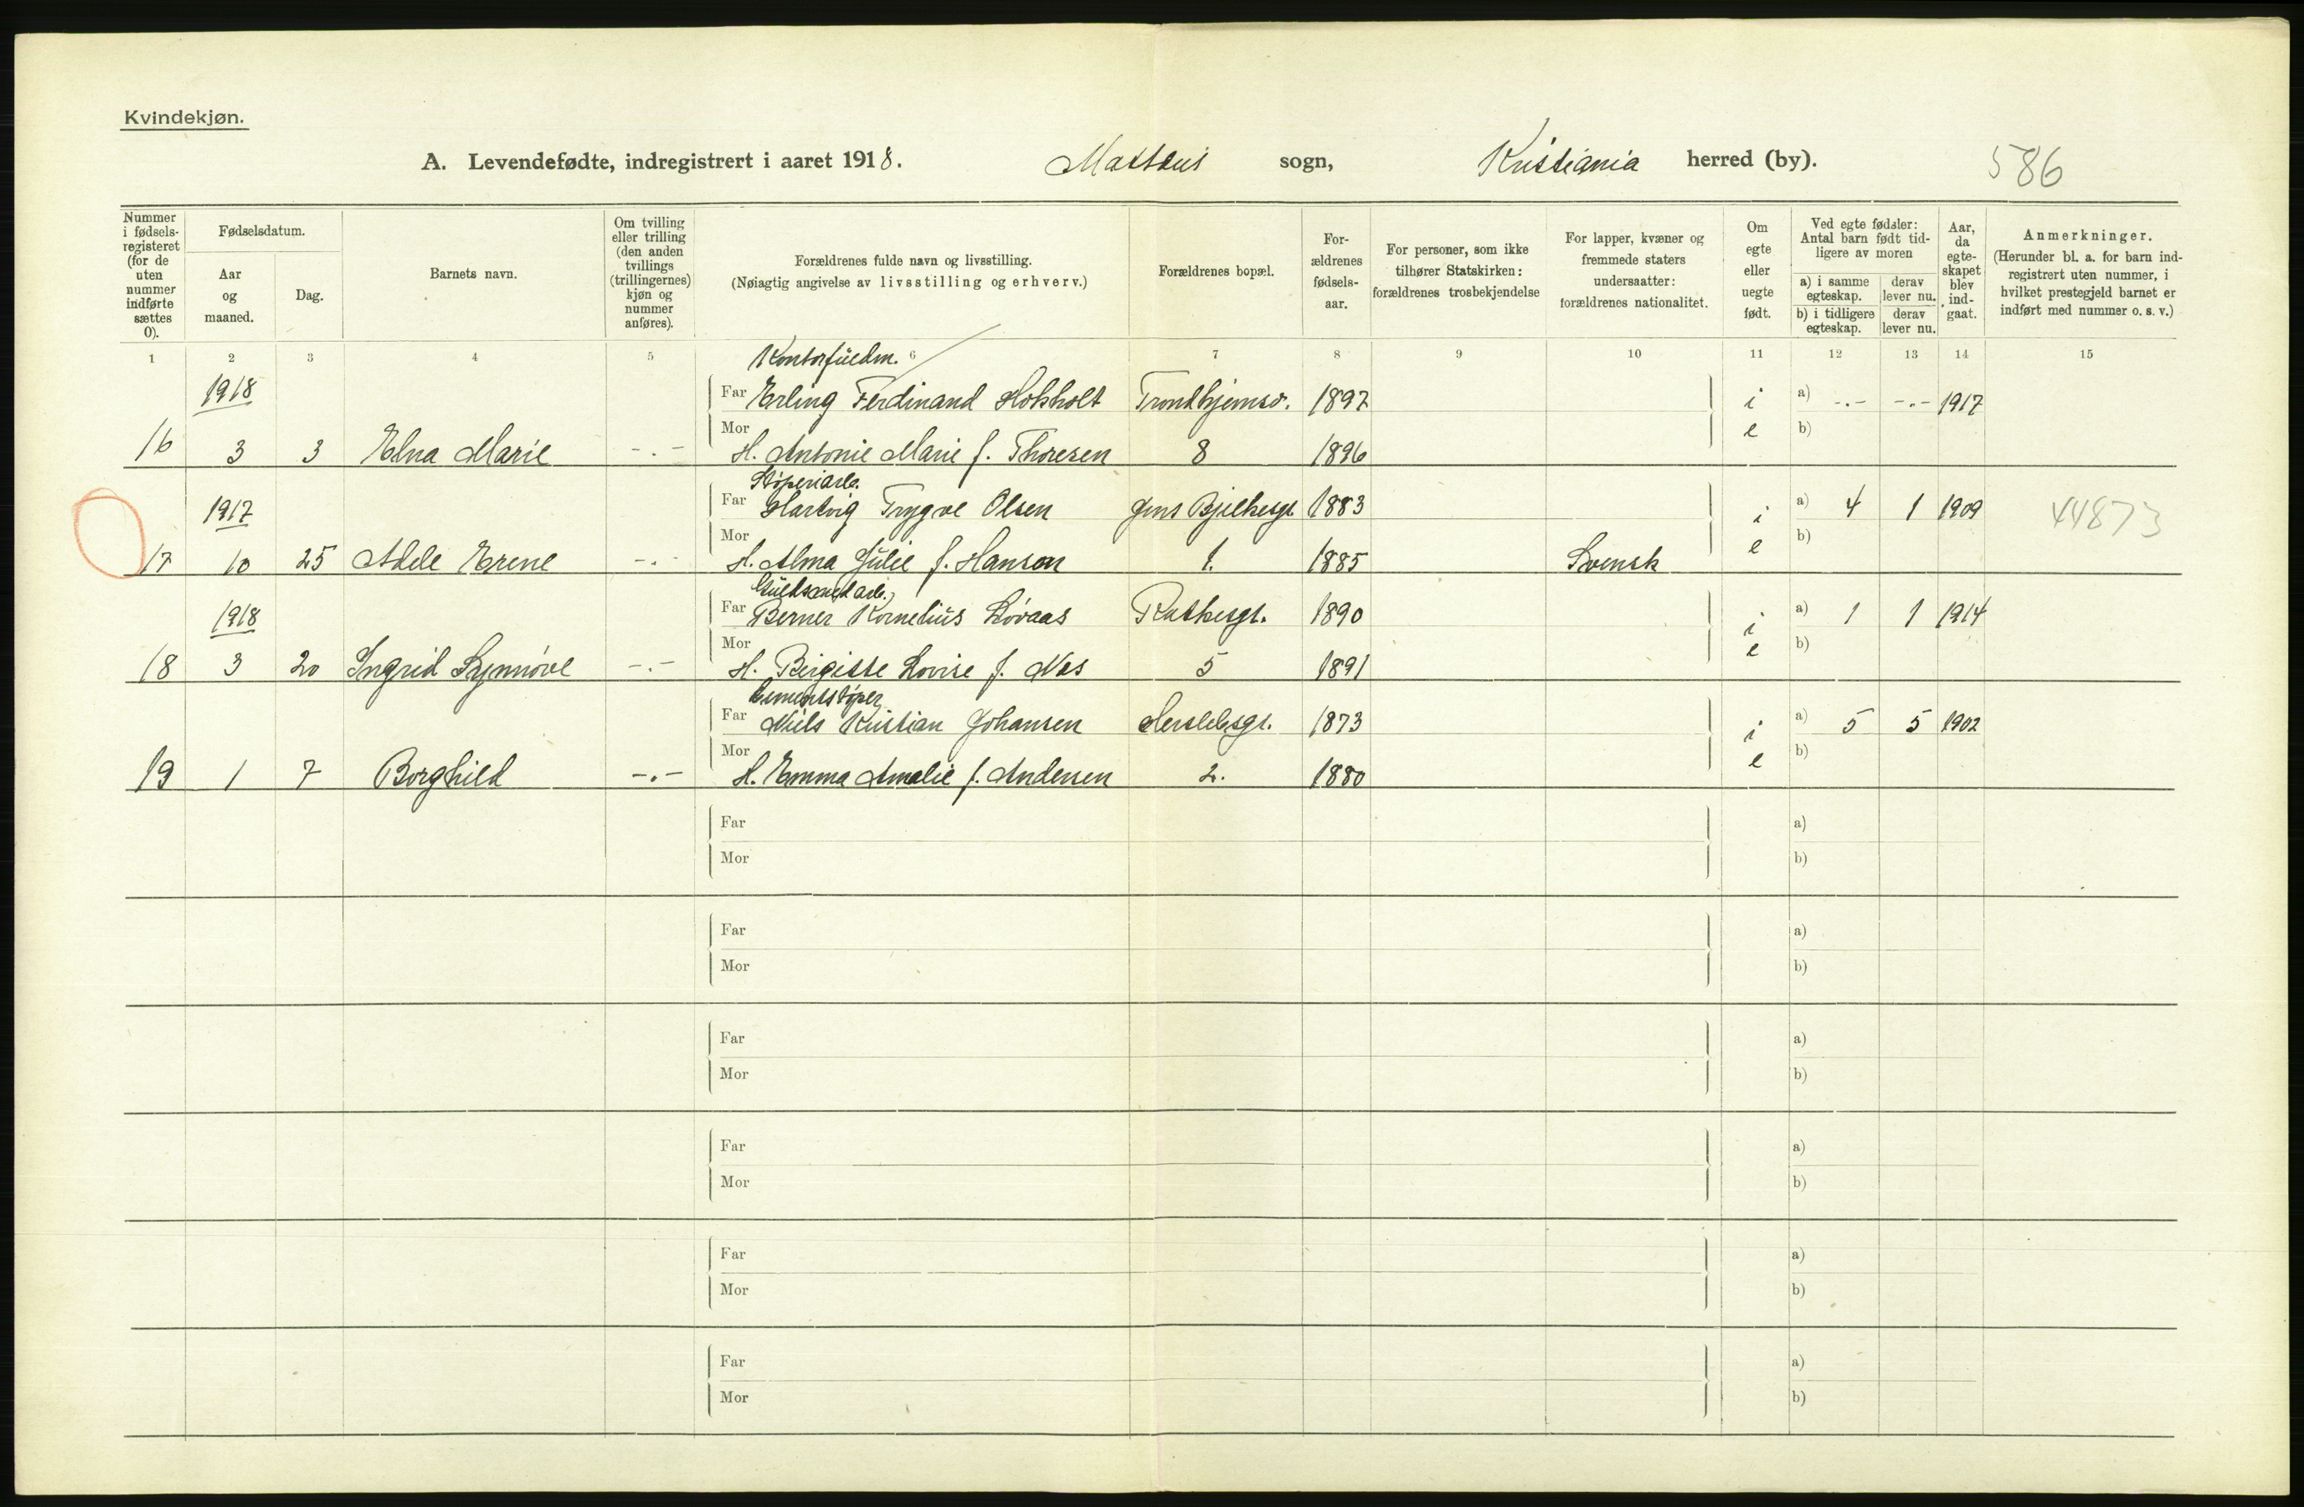 Kvindekjøn.
A. Levendefødte, indregistrert i aaret 1918. Matteus sogn, Kristiania herred (by). 586
Nummer i fødsels-registeret (for de uten nummer indførte sættes 0).
Fødselsdatum.
Aar og maaned.
Dag.
Barnets navn.
Om tvilling eller trilling (den anden tvillings (trillingernes) kjøn og nummer anføres).
Forældrenes fulde navn og livsstilling.
(Nøiagtig angivelse av livsstilling og erhverv.)
Forældrenes bopæl.
For-ældrenes fødsels-aar.
For personer, som ikke tilhører Statskirken: forældrenes trosbekjendelse
For lapper, kvæner og fremmede staters undersaatter: forældrenes nationalitet.
Om egte eller uegte født.
Ved egte fødsler: Antal barn født tid-ligere av moren
a) i samme egteskap.
derav lever nu.
b) i tidligere egteskap.
derav lever nu.
Aar, da egte-skapet blev ind-gaat.
Anmerkninger.
(Herunder bl. a. for barn ind-registrert uten nummer, i hvilket prestegjeld barnet er indført med nummer o. s. v.)
1 2 3 4 5 6 7 8 9 10 11 12 13 14 15
Kontorfuldm.
1918 Far Erling Ferdinand Hokholt Trondhjemsv. 1897 i a) -.- -.- 1917
16 3 3 Elna Marie -.- Mor H. Antonie Marie f. Thoresen 8 1896 e b)
Støperiarb.
1917 Far Hartvig Trygve Olsen Jens Bjelkesgt 1883 i a) 4 1 1909 44873
17 10 25 Adele Erene -.- Mor H. Alma Julie f. Hanson 1. 1885 Svensk e b)
1918 Far Berner Kornelius Løvaas Rathkesgt. 1890 i a) 1 1 1914
18 3 20 Ingrid Synnøve -.- Mor H. Birgitte Lovise f. Næs 5 1891 e b)
Cementstøper
Far Niels Kristian Johansen Herslebsgt. 1873 i a) 5 5 1902
19 1 7 Borghild -.- Mor H. Emma Amalie f. Andersen 2. 1880 e b)
Far a)
Mor b)
Far a)
Mor b)
Far a)
Mor b)
Far a)
Mor b)
Far a)
Mor b)
Far a)
Mor b)